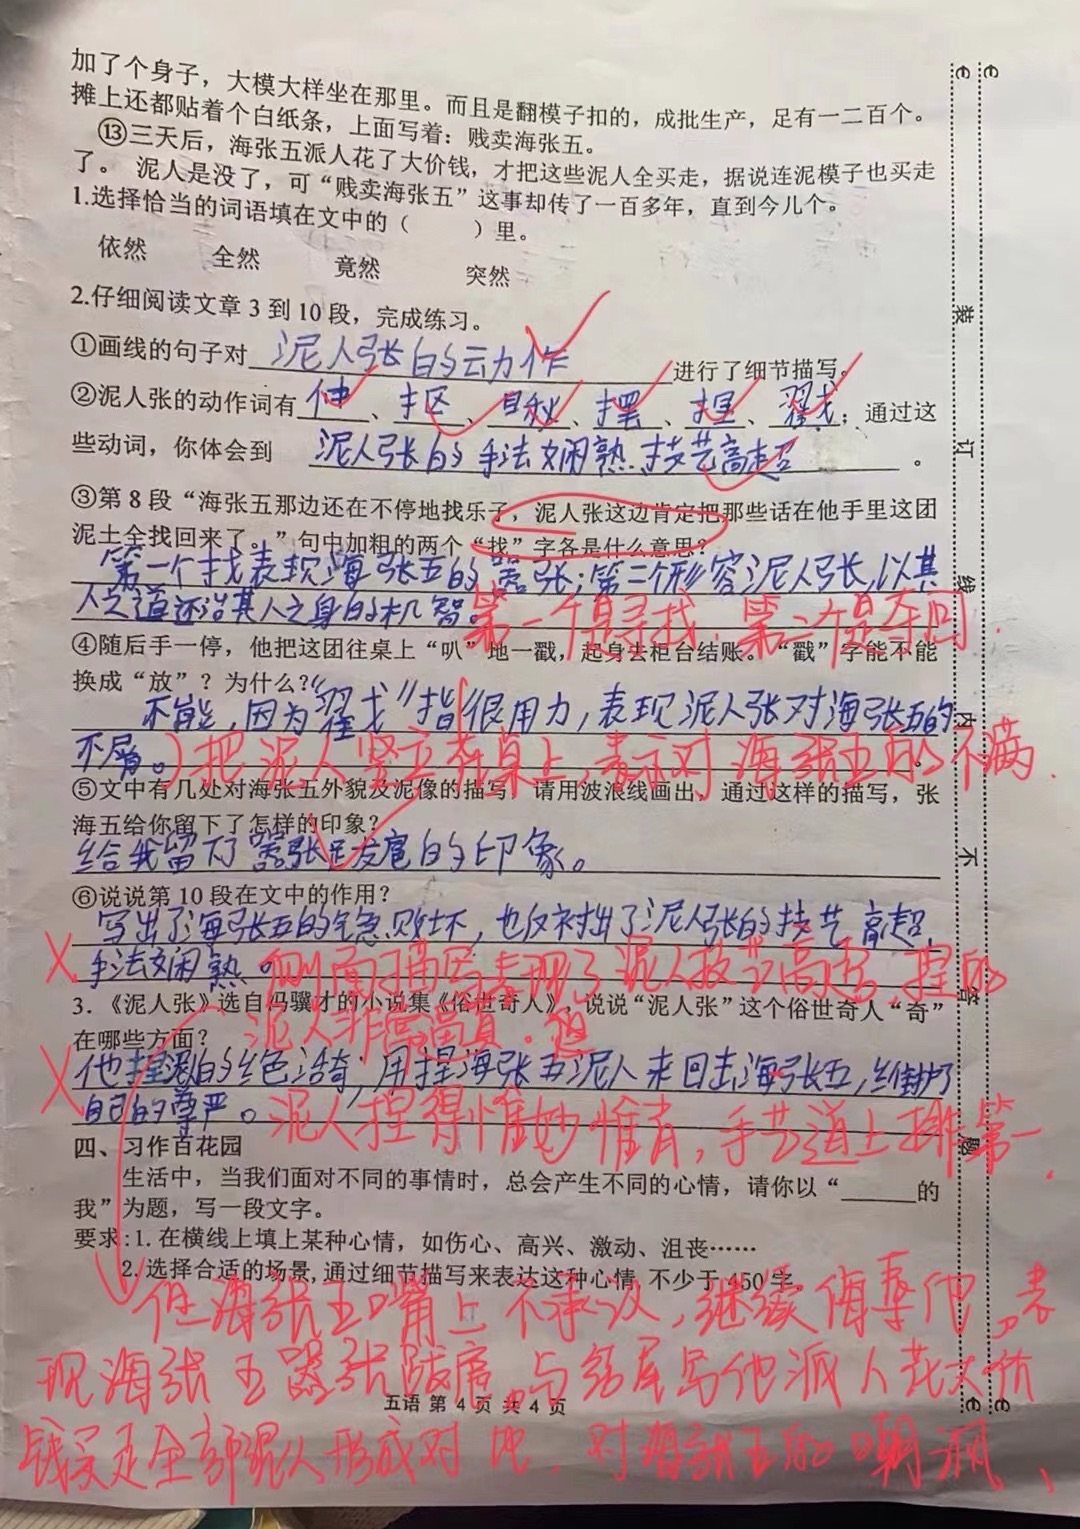 加了个身子，大模大样坐在那里。而且是翻模子扣的，成批生产，足有一二百个。
摊上还都贴着个白纸条，上面写着：贱卖海张五。
⑬三天后，海张五派人花了大价钱，才把这些泥人全买走，据说连泥模子也买走
了。 泥人是没了，可“贱卖海张五”这事却传了一百多年，直到今儿个。
1.选择恰当的词语填在文中的（ ）里。
依然 全然 竟然 突然
2.仔细阅读文章 3 到 10 段，完成练习。
①画线的句子对 泥人张的动作 进行了细节描写。
②泥人张的动作词有 伸 、 抠 、 、 摆 、 捏 、 戳 ；通过这
些动词，你体会到 泥人张的手法娴熟，技艺高超 。
③第 8 段“海张五那边还在不停地找乐子，泥人张这边肯定把那些话在他手里这团
泥土全找回来了。”句中加粗的两个“找”字各是什么意思？
第一个找表现海张五的嚣张；第二个形容泥人张，以其
人之道还治其人之身的机智。
第一个是寻找，第二个是夺回．
④随后手一停，他把这团往桌上“叭”地一戳，起身去柜台结账。“戳”字能不能
换成“放”？为什么？
不能，因为“戳”指很用力，表现泥人张对海张五的
不屑。
把泥人竖立在桌上，表示对海张五的不满．
⑤文中有几处对海张五外貌及泥像的描写，请用波浪线画出，通过这样的描写，张
海五给你留下了怎样的印象？
给我留下了嚣张跋扈的印象。
⑥说说第 10 段在文中的作用？
写出了海张五的气急败坏，也反衬出了泥人张的技艺高超，
手法娴熟。
侧面描写表现了泥人技艺高秀，捏的
泥人非常逼真．
3．《泥人张》选自冯骥才的小说集《俗世奇人》，说说“泥人张”这个俗世奇人“奇”
在哪些方面？
他捏泥的绝色活奇；用捏海张五泥人来回击海张五，维护了
自己的尊严。
泥人捏得惟妙惟肖，手艺道上排第一．
四、习作百花园
生活中，当我们面对不同的事情时，总会产生不同的心情，请你以“______的
我”为题，写一段文字。
要求：1. 在横线上填上某种心情，如伤心、高兴、激动、沮丧……
2. 选择合适的场景，通过细节描写来表达这种心情，不少于 450 字．
但海张五嘴上不承认，继续侮辱他，表
现海张五嚣张跋扈，与结尾写他派人花大价
钱买走全部泥人形成对比，对海张五的嘲讽、
五语 第 4 页 共 4 页
装
订
线
内
不
答
题